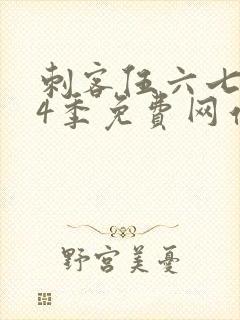 刺客伍六七
4季免费网
野宫美忧